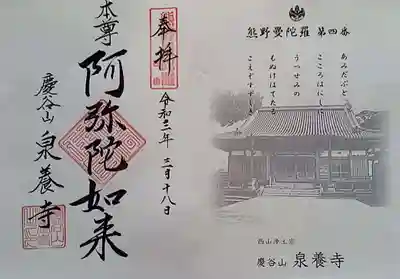 熊野曼陀羅 第四番
あみだぶと
こころはにしに
うつせみの
もぬけはてたる
こえぞすずしき
西山浄土宗
慶谷山 泉養寺
奉拝
令和三年十二月十八日
本尊
阿弥陀如来
慶谷山 泉養寺